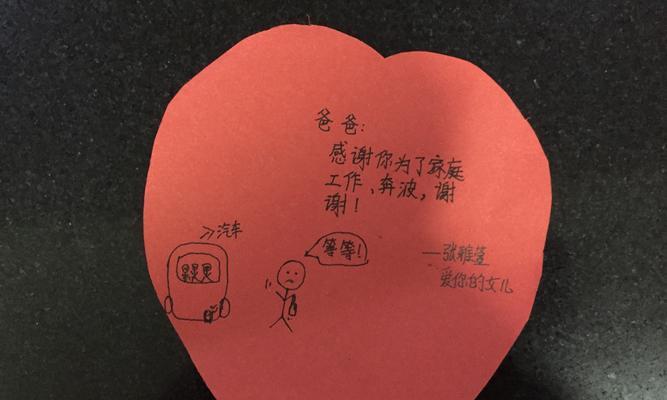 爸爸:
感谢你为了家庭
工作、奔波,谢
谢!
汽车
等等!
—张雅萱
爱你的女儿